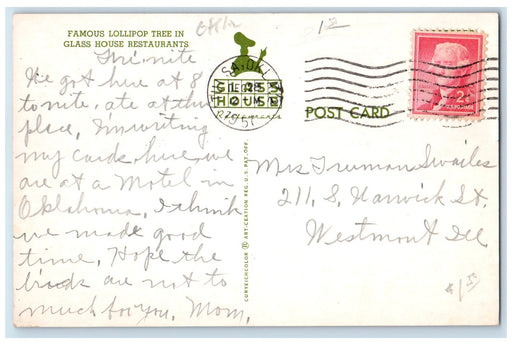 FAMOUS LOLLIPOP TREE IN
GLASS HOUSE RESTAURANTS
Fri. nite
We got here at 8
to nite, ate at this
place, I'm writing
my cards here, we
are at a Motel in
Oklahoma, I think
we made good
time, Hope the
birds are not to
much for you, Mom,
GLASS
HOUSE
Restaurants
POST CARD
CURTEICHCOLOR ® ART-CREATION REG. U.S. PAT. OFF.
2¢
Mrs Truman Swailes
211, S, Warwick St.
Westmont Ill